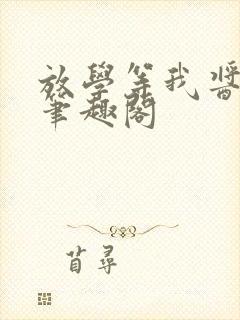 放學等我醬
筆趣閣
苜尋